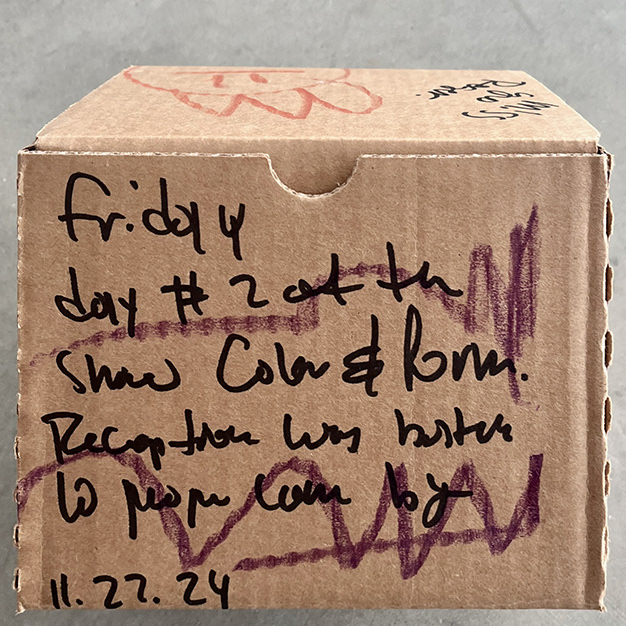 Miss
you
Friday
day # 2 at the
Show Color & Form.
Reception was better
10 people came by
11.22.24